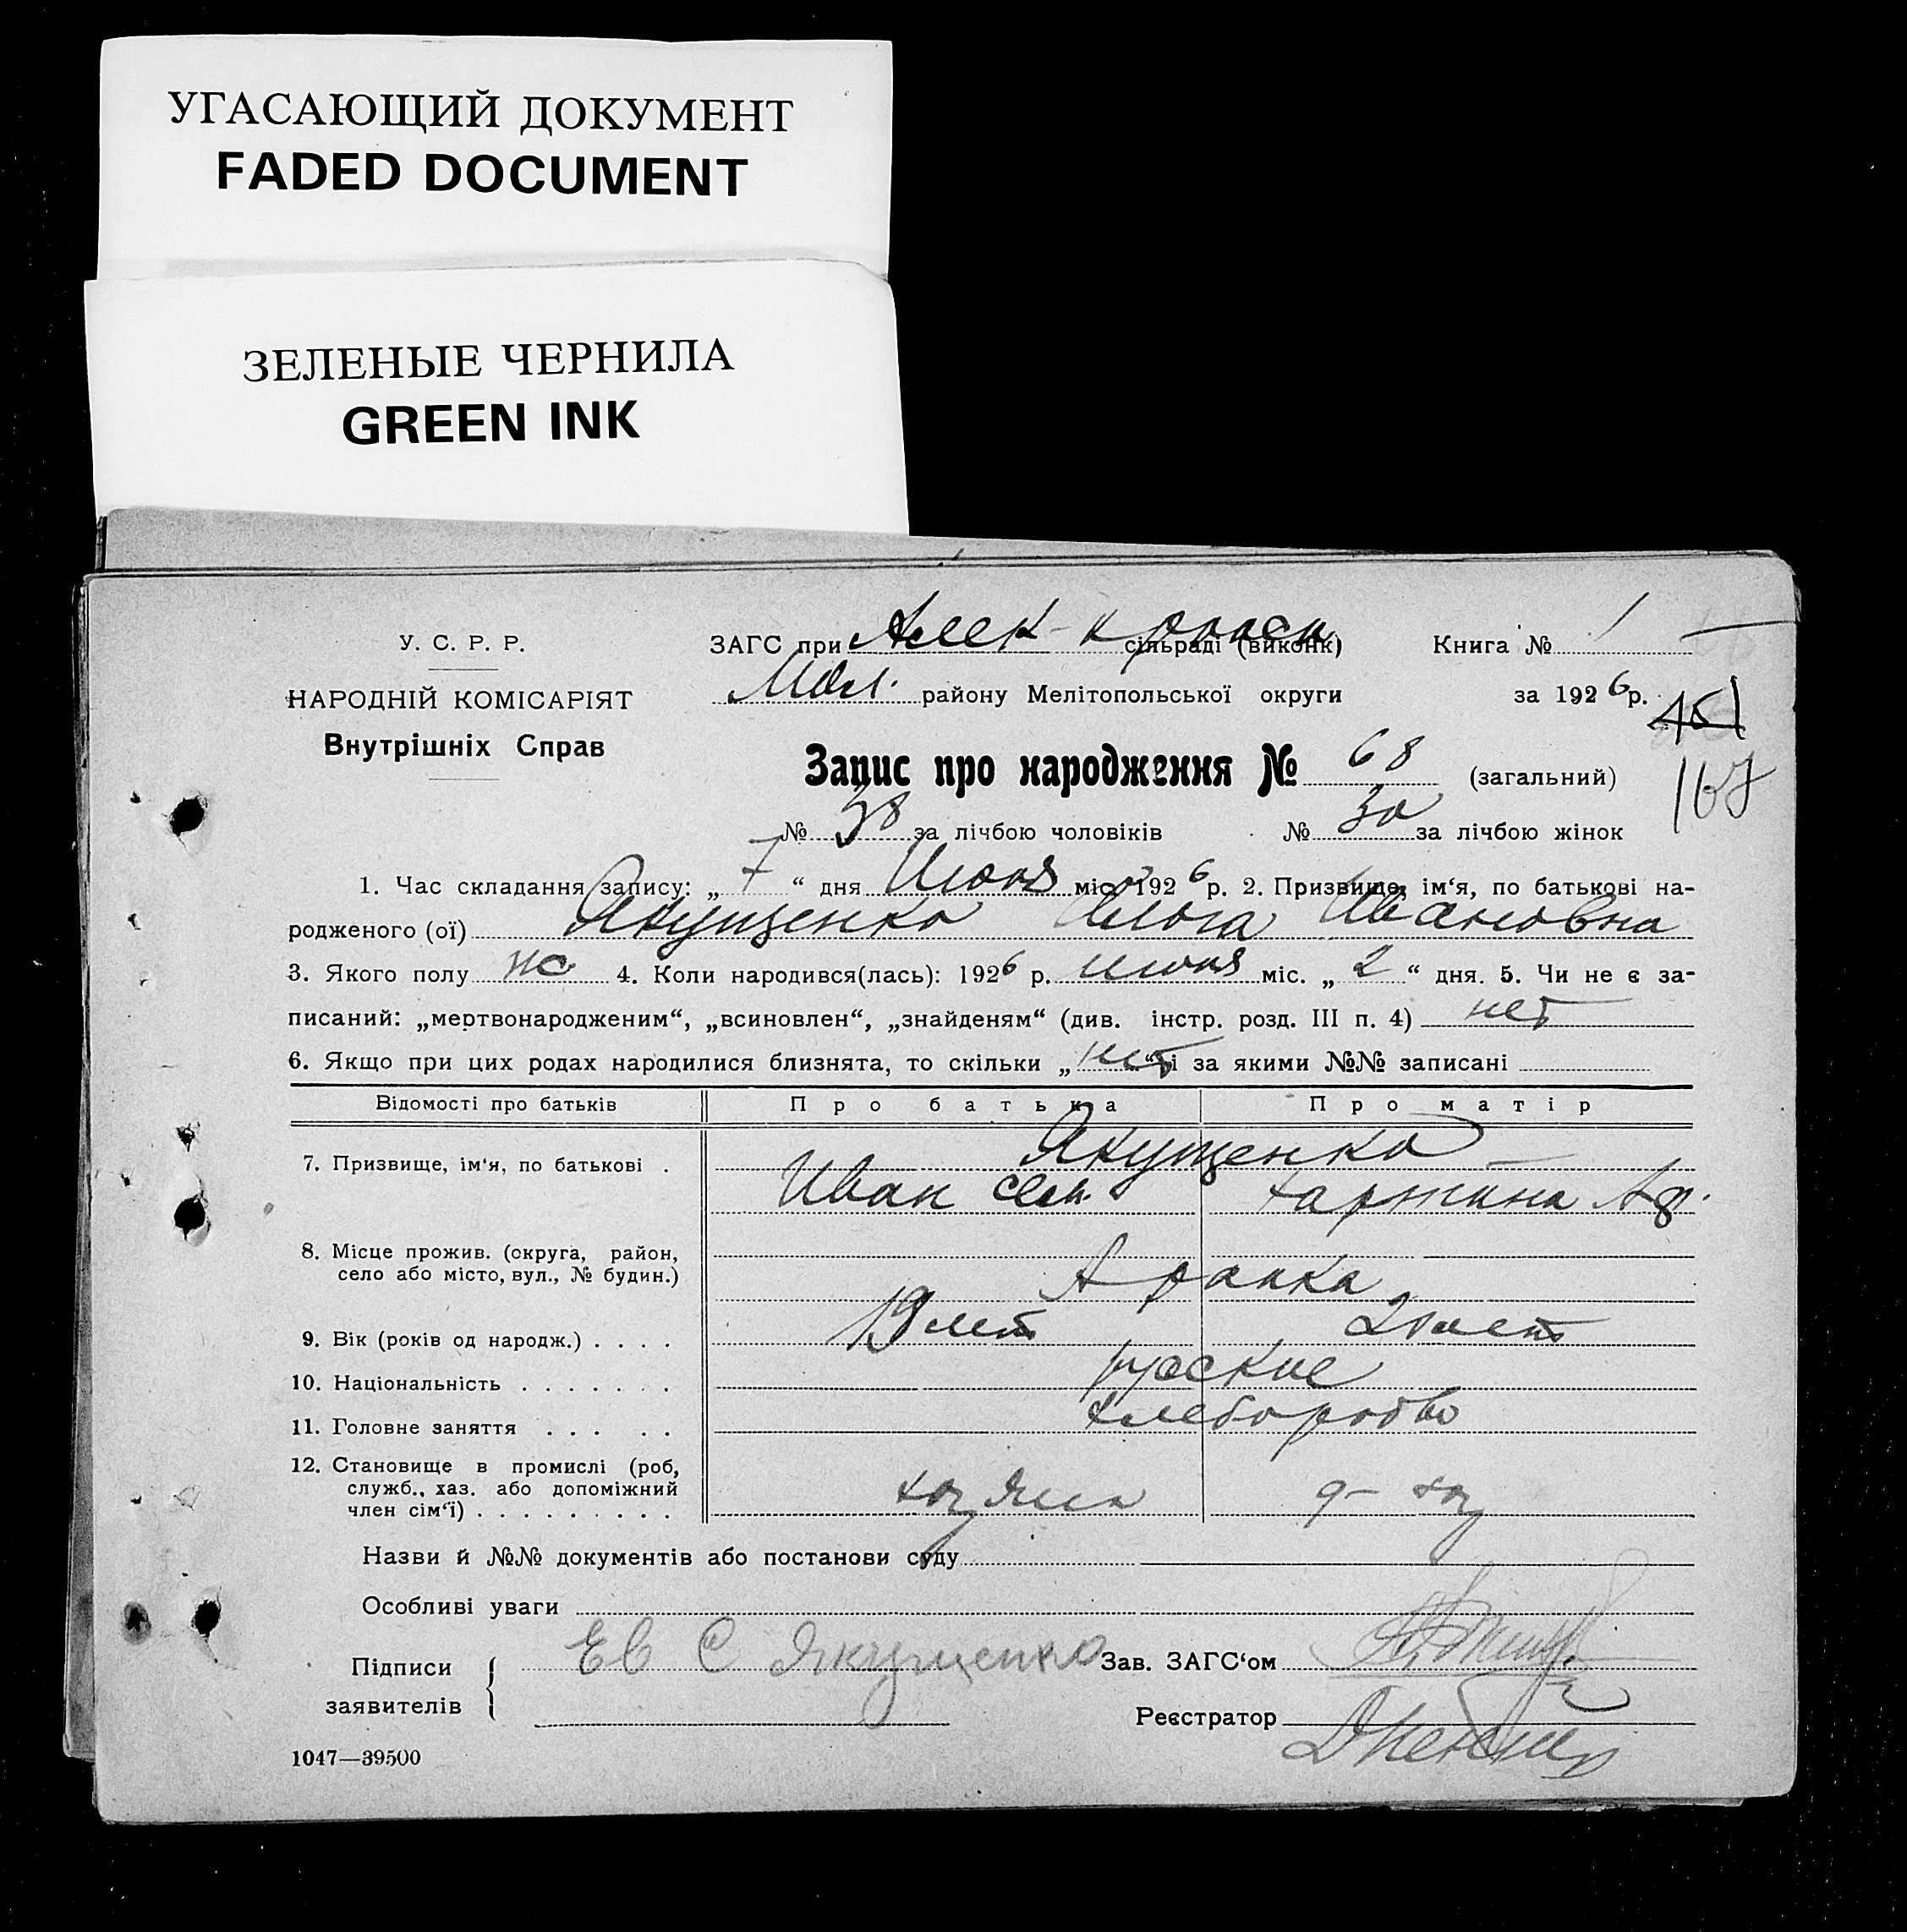 УГАСАЮЩИЙ ДОКУМЕНТ
FADED DOCUMENT
ЗЕЛЕНЫЕ ЧЕРНИЛА
GREEN INK
У. С. Р. Р.
НАРОДНІЙ КОМІСАРІЯТ
Внутрішніх Справ
ЗАГС при Алек- сільраді (виконк)
Мел. району Мелітопольської округи
Книга № 1
за 1926 р.
Запис про народження № 68 (загальний)
167
№ 38 за лічбою чоловіків № 30 за лічбою жінок
1. Час складання запису: „ 7 “ дня Июня міс. 1926 р. 2. Призвище, ім‘я, по батькові на-
родженого (ої) Якущенко Ивановна
3. Якого полу ж 4. Коли народився(лась): 1926 р. июня міс. „ 2 “ дня. 5. Чи не є за-
писаний: „мертвонародженим“, „всиновлен“, „знайденям“ (див. інстр. розд. III п. 4) нет
6. Якщо при цих родах народилися близнята, то скільки „ нет “ і за якими №№ записані
Відомості про батьків Про батька Про матір
7. Призвище, ім‘я, по батькові . Якущенко
Иван Сем.
8. Місце прожив. (округа, район,
село або місто, вул., № будин.)
9. Вік (років од народж.) . . . . 19 лет 20 лет
10. Національність . . . . . . . русские
11. Головне заняття . . . . . хлеборобство
12. Становище в промислі (роб,
служб., хаз. або допоміжний
член сім‘ї) . . . . . . . . . хозяин д- хоз
Назви й №№ документів або постанови суду
Особливі уваги
Підписи
заявителів
Ев С Якущенко
Зав. ЗАГС‘ом
Реєстратор
1047—39500